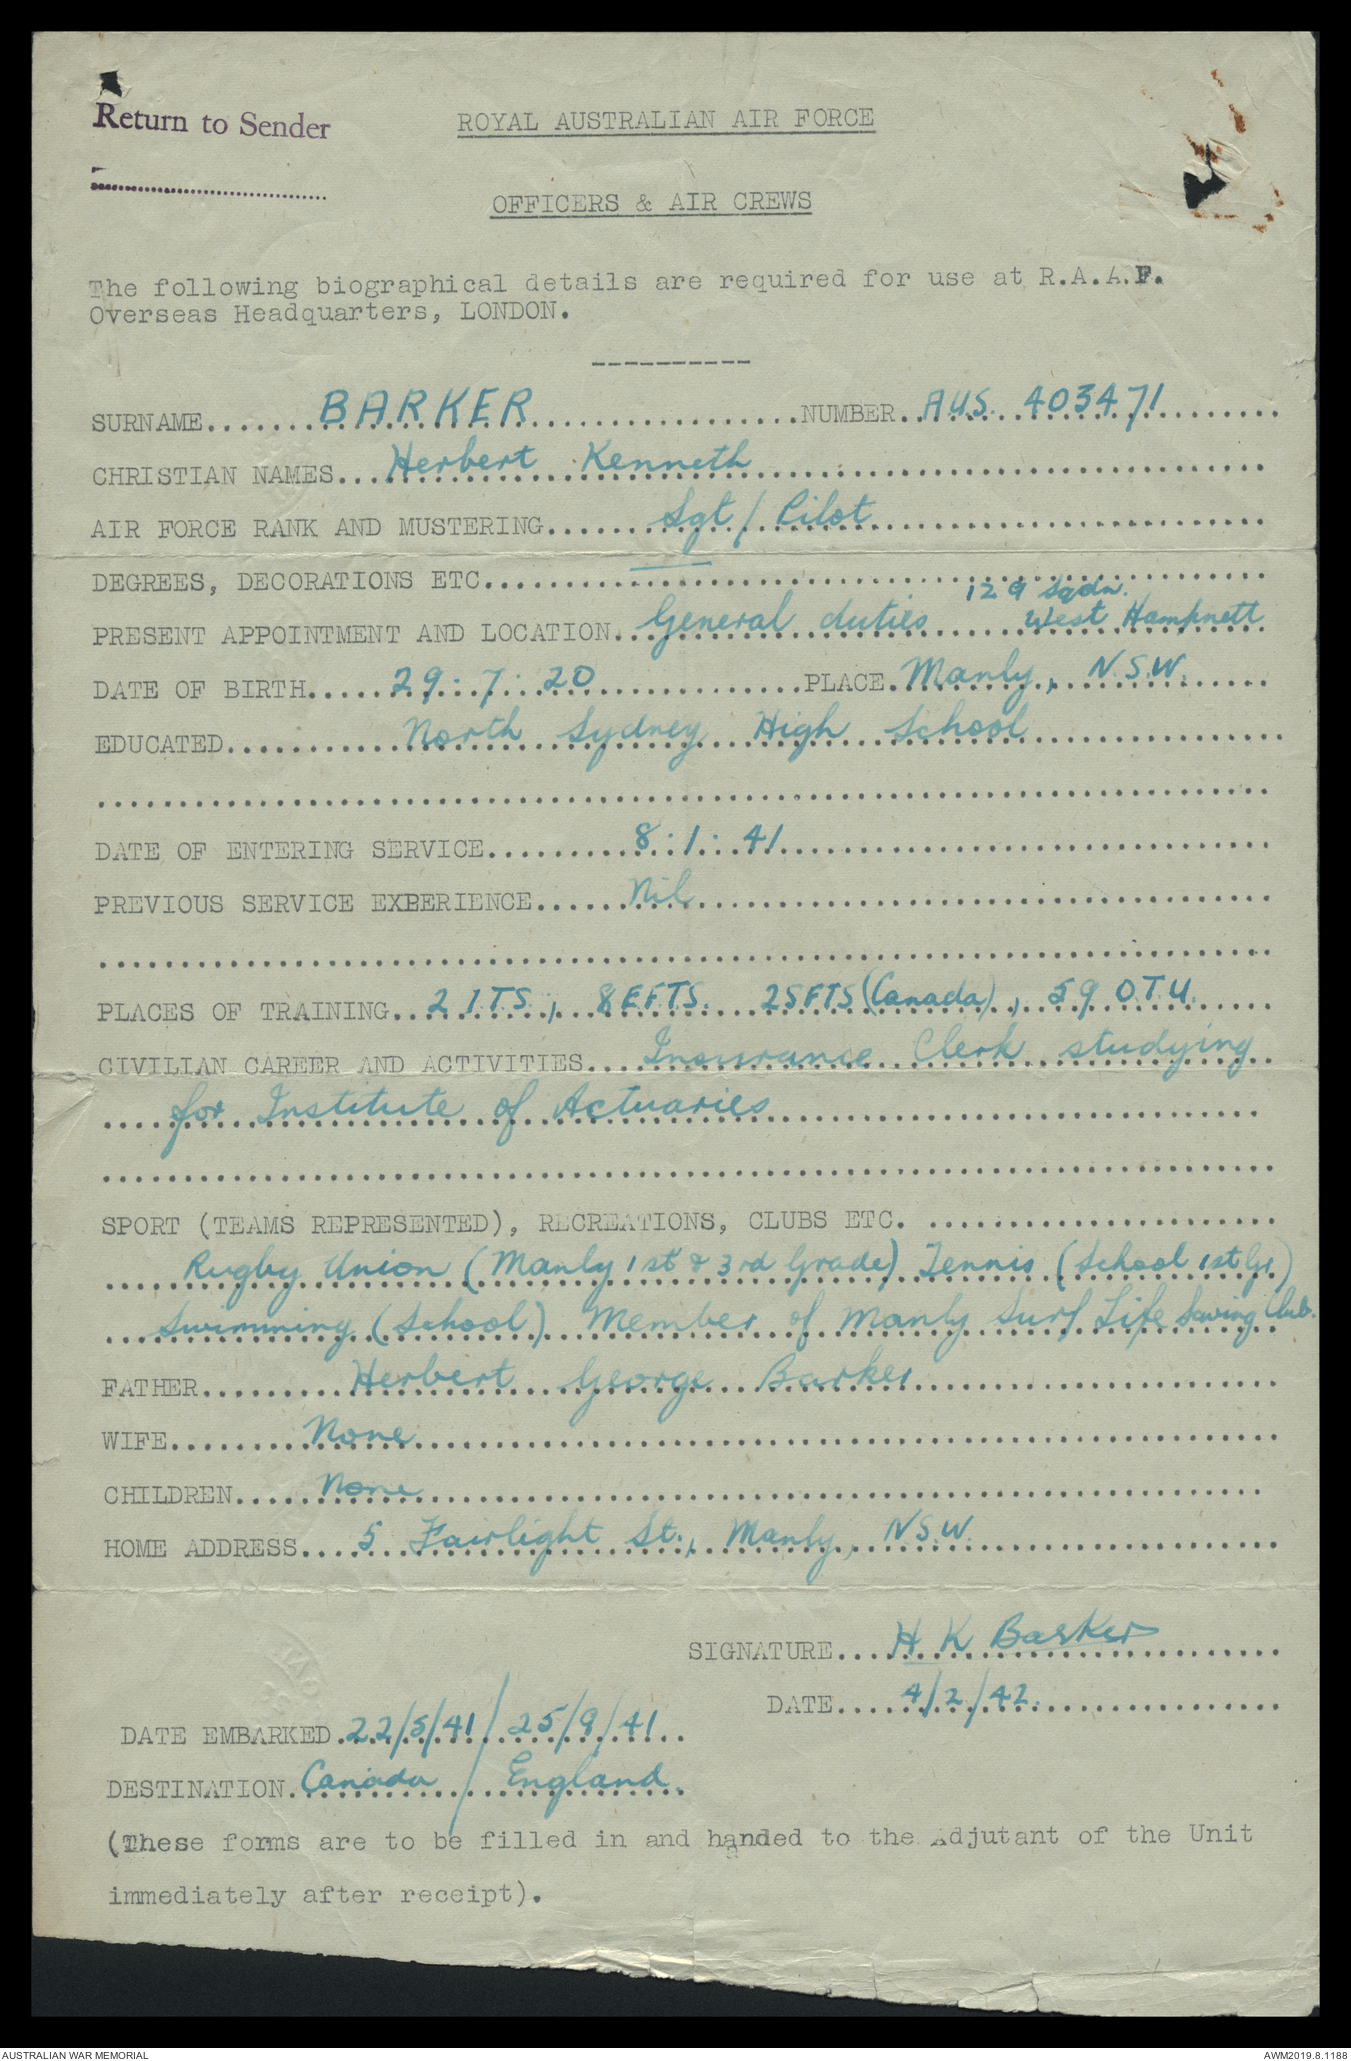 Return to Sender
ROYAL AUSTRALIAN AIR FORCE
OFFICERS & AIR CREWS
The following biographical details are required for use at R.A.A.F.
Overseas Headquarters, LONDON.
----------
SURNAME.......BARKER.................NUMBER..AUS. 403471.......
CHRISTIAN NAMES...Herbert Kenneth................................
AIR FORCE RANK AND MUSTERING.......Sgt / Pilot........................
DEGREES, DECORATIONS ETC.......—................................
129 Sqdn.
PRESENT APPOINTMENT AND LOCATION..General duties......West Hampnett
DATE OF BIRTH.....29.7.20.............PLACE.Manly, N.S.W......
EDUCATED...........North Sydney High School................
........................................................................
DATE OF ENTERING SERVICE.........8.1.41..............................
PREVIOUS SERVICE EXBERIENCE......Nil....................................
........................................................................
PLACES OF TRAINING..2 I.T.S., 8 E.F.T.S. 2SFTS (Canada), 59 O.T.U.....
CIVILIAN CAREER AND ACTIVITIES....Insurance Clerk studying..
....for Institute of Actuaries..............................
........................................................................
SPORT (TEAMS REPRESENTED), RECREATIONS, CLUBS ETC. ......................
....Rugby Union (Manly 1st & 3rd Grade) Tennis (School 1st Gr.)
...Swimming (School) Member of Manly Surf Life Saving Club.
FATHER.........Herbert George Barker.......................
WIFE.........None......................................................
CHILDREN.....None....................................................
HOME ADDRESS....5 Fairlight St., Manly, N.S.W....................
SIGNATURE....H K Barker........
DATE....4/2/42................
DATE EMBARKED.22/5/41 / 25/9/41..
DESTINATION.Canada / England.
(These forms are to be filled in and handed to the Adjutant of the Unit
immediately after receipt).
AUSTRALIAN WAR MEMORIAL
AWM2019.8.1188